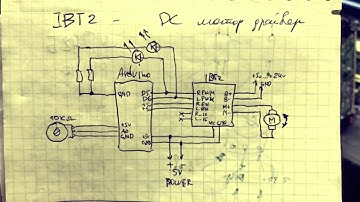 IBT2 - DC мотор драйвер
Arduino
IBT2
GND
D5
D6
RPWM
LPWM
R_EN
L_EN
R_IS
L_IS
VCC
GND
B+
B-
M+
M-
GND
M
10KΩ
+5V
A0
GND
+ -
5V
POWER